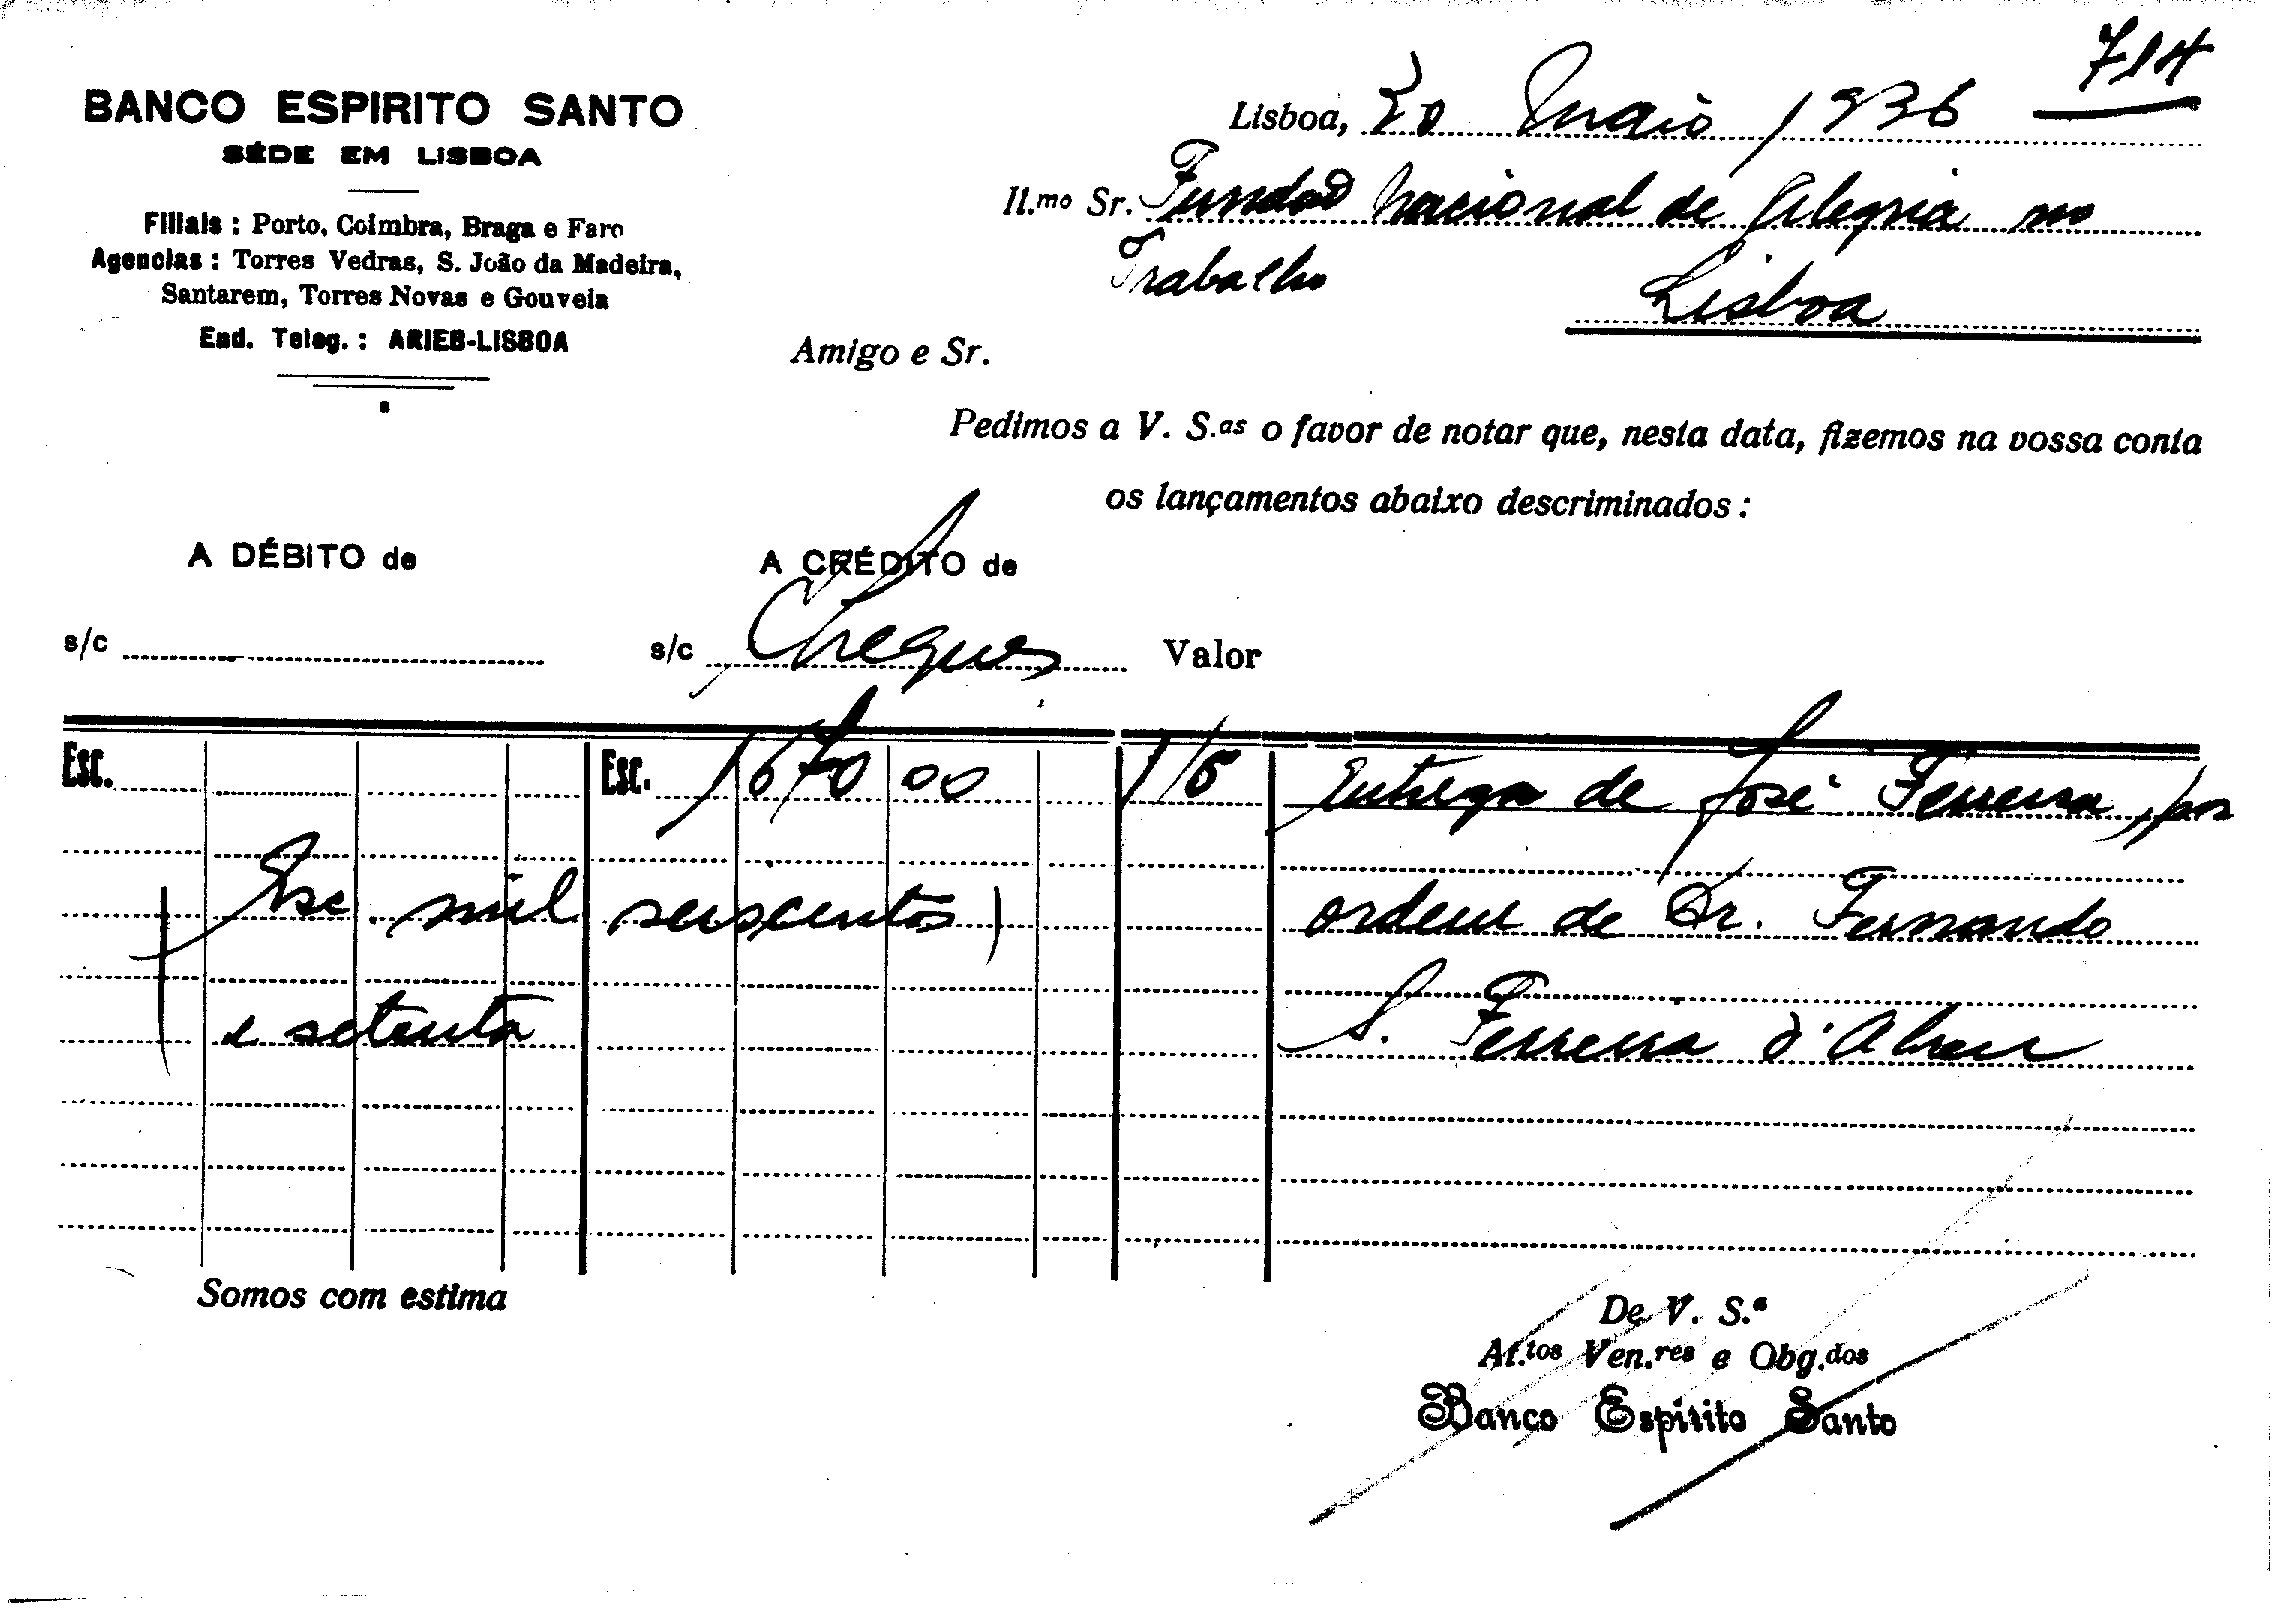 714
BANCO ESPIRITO SANTO
SÉDE EM LISBOA
Filiais : Porto, Coimbra, Braga e Faro
Agencias : Torres Vedras, S. João da Madeira,
Santarem, Torres Novas e Gouveia
End. Teleg. : ARIEB-LISBOA
Lisboa, 20 Maio 1936
Il.mo Sr. Fundaç Nacional de Alegria no
Trabalho
Lisboa
Amigo e Sr.
Pedimos a V. S.as o favor de notar que, nesta data, fizemos na vossa conta
os lançamentos abaixo descriminados :
A DÉBITO de
A CRÉDITO de
s/c
s/c Cheques Valor
Esc. Esc. 1670 00 1/6 Entrega de José Ferreira, por
(Esc. mil seiscentos) ordem de Dr. Fernando
e setenta S. Ferreira d'Abreu
Somos com estima
De V. S.ª
At.tos Ven.res e Obg.dos
Banco Espirito Santo